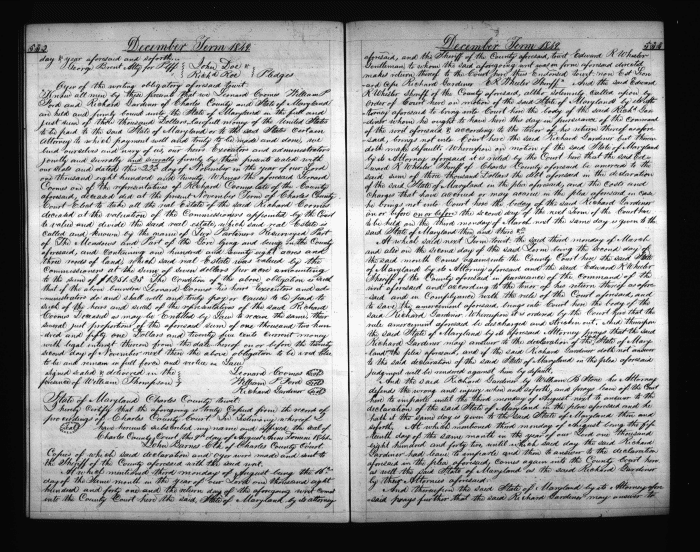 532
December Term 1842.
day & year aforesaid and so forth.
George Brent Atty for Plff { John Doe & Richd Roe } Pledges
Oyer of the writing obligatory aforesaid to wit
Know all men by these presents that we Leonard Coomes William P
Ford and Richard Gardiner of Charles County and State of Maryland
are held and firmly bound unto the State of Maryland in the full and
just sum of three Thousand Dollars current money of the United States
to be paid to the said State of Maryland or to the said State certain
Attorney to which payment well and truly to be made and done, we
bind ourselves and every of us our heirs Executors and administrators
jointly and severally and severally firmly by these presents sealed with
our seals and dated this 22d day of November in the year of our Lord
one thousand eight hundred and thirty Whereas the aforesaid Leonard
Coomes one of the representatives of Richard Coomes late of the County
aforesaid, deceased did at the present November Term of Charles County
Court Elect to take at the real Estate of the said Richard Coomes
deceased at the valuation of the Commissioners appointed by the Court
to value and divide the said real estate, which said real Estate is
called and known by the name of
The Meadows and Part of the Cove lying and being in the County
aforesaid, and Containing one hundred and seventy eight acres and
three roods of Land, which said real Estate was valued by the
Commissioners at the sum of seven dollars per acre amounting
to the sum of $1251.25 The Condition of the above obligation is such
that if the above bounden Leonard Coomes his heirs Executors and ad-
ministrators do and shall well and truly pay or cause to be paid to
each of the heirs and each of the representatives of the said Richard
Coomes Deceased as may be Entitled by Law to receive the same their
several just proportions of the aforesaid sum of one thousand two hun-
dred and fifty one Dollars and twenty five cents Current money
with legal interest thereon from the date hereof on or before the twenty
second day of November next then the above obligation to be void Else
to be and remain in full force and virtue in Law
signed sealed & delivered in the } Leonard Coomes (seal)
presence of William Thompson } William P Ford (seal)
Richard Gardiner (seal)
State of Maryland Charles County to wit.
I hereby Certify that the aforegoing is truly Copied from the record of
proceedings of Charles County Court In Testimony whereof I
(seal) have hereunto subscribed my name and affixed the seal of
Charles County Court this day of August Anno Domini 1841.
John Barnes Clk of Charles County Court
Copies of which said declaration and oyer were made and sent to
the Sheriff of the County aforesaid with the said writ
At which mentioned third monday of August being the 16th
day of the same month in the year of our Lord one thousand eight
hundred and forty one and the return day of the aforegoing writ comes
into the County Court here the said State of Maryland by its attorney
December Term 1842.
533
aforesaid, and the Sheriff of the County aforesaid, to wit Edward R Wheeler
Gentleman to whom the said aforegoing writ was in form aforesaid directed
makes return thereof to the Court here thus Endorsed to wit
and Cepi Richard Gardiner E R Wheeler Sheriff. And the said Edward
R Wheeler Sheriff of the County aforesaid, altho solemnly called upon by
order of Court here on motion of the said State of Maryland by its
Attorney aforesaid to bring into Court here the body of the said Richard Gar-
diner whom he ought to have here this day in pursuance of the Command
of the writ aforesaid & according to the tenor of his return thereof as afore-
said, brings not into Court here the said Richard Gardiner but therein
doth make default Whereupon on motion of the said State of Maryland
by its Attorney aforesaid it is ruled by the Court here that the said Ed-
ward R Wheeler Sheriff of Charles County aforesaid be amerced to the
said sum of three thousand Dollars the debt aforesaid in the declaration
of the said State of Maryland in the plea aforesaid, and the costs and
Charges that have accrued or may accrue in the plea aforesaid in case
he brings not into Court here the body of the said Richard Gardiner
on or before on or before the second day of the next Term of the Court here
to be held on the third monday of March next the same day is given to the
said State of Maryland then and there &c.
At which said next Term to wit the said third monday of March
and also on the second day of the said Term being the second day of
the said month comes again into the County Court here the said State
of Maryland by its Attorney aforesaid and the said Edward R Wheeler
Sheriff of the County aforesaid in pursuance of the Command of the
writ aforesaid and according to the tenor of his return thereof as afore-
said and in Compliance with the rule of the Court aforesaid, and
to save the amercement aforesaid, brings into Court here the body of the
said Richard Gardiner, Whereupon it is ordered by the Court here that the
rule amercement aforesaid be discharged and Stricken out, And therefore
the said State of Maryland by its aforesaid Attorney prays that the said
Richard Gardiner may answer to the declaration of the State of Mary-
land the plea aforesaid, and if the said Richard Gardiner doth not answer
to the said declaration of the said State of Maryland in the plea aforesaid
judgment will be rendered against him by default.
And the said Richard Gardiner by William B Stone his Attorney
defends the wrong and injury when and so forth, and prays leave of the Court
here to imparle until the third monday of August next to answer to the
declaration of the said State of Maryland in the plea aforesaid and he
hath it the same day is given to the said State of Maryland then and
so forth. At which mentioned third monday of August being the fif-
teenth day of the same month in the year of our Lord one Thousand
eight hundred and forty two until which said day the said Richard
Gardiner had leave to imparle and then to answer to the declaration
aforesaid in the plea aforesaid, comes again into the County Court here
as well the said State of Maryland as the said Richard Gardiner
by their Attornies aforesaid.
And thereupon the said State of Maryland by its Attorney afore-
said prays further that the said Richard Gardiner may answer to